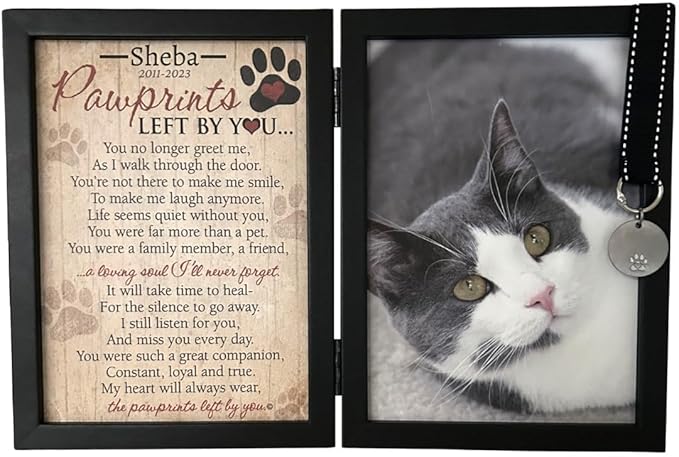 Sheba
2011-2023
Pawprints
LEFT BY YOU...
You no longer greet me,
As I walk through the door.
You're not there to make me smile,
To make me laugh anymore.
Life seems quiet without you,
You were far more than a pet.
You were a family member, a friend,
...a loving soul I'll never forget.
It will take time to heal-
For the silence to go away.
I still listen for you,
And miss you every day.
You were such a great companion,
Constant, loyal and true.
My heart will always wear,
the pawprints left by you.©